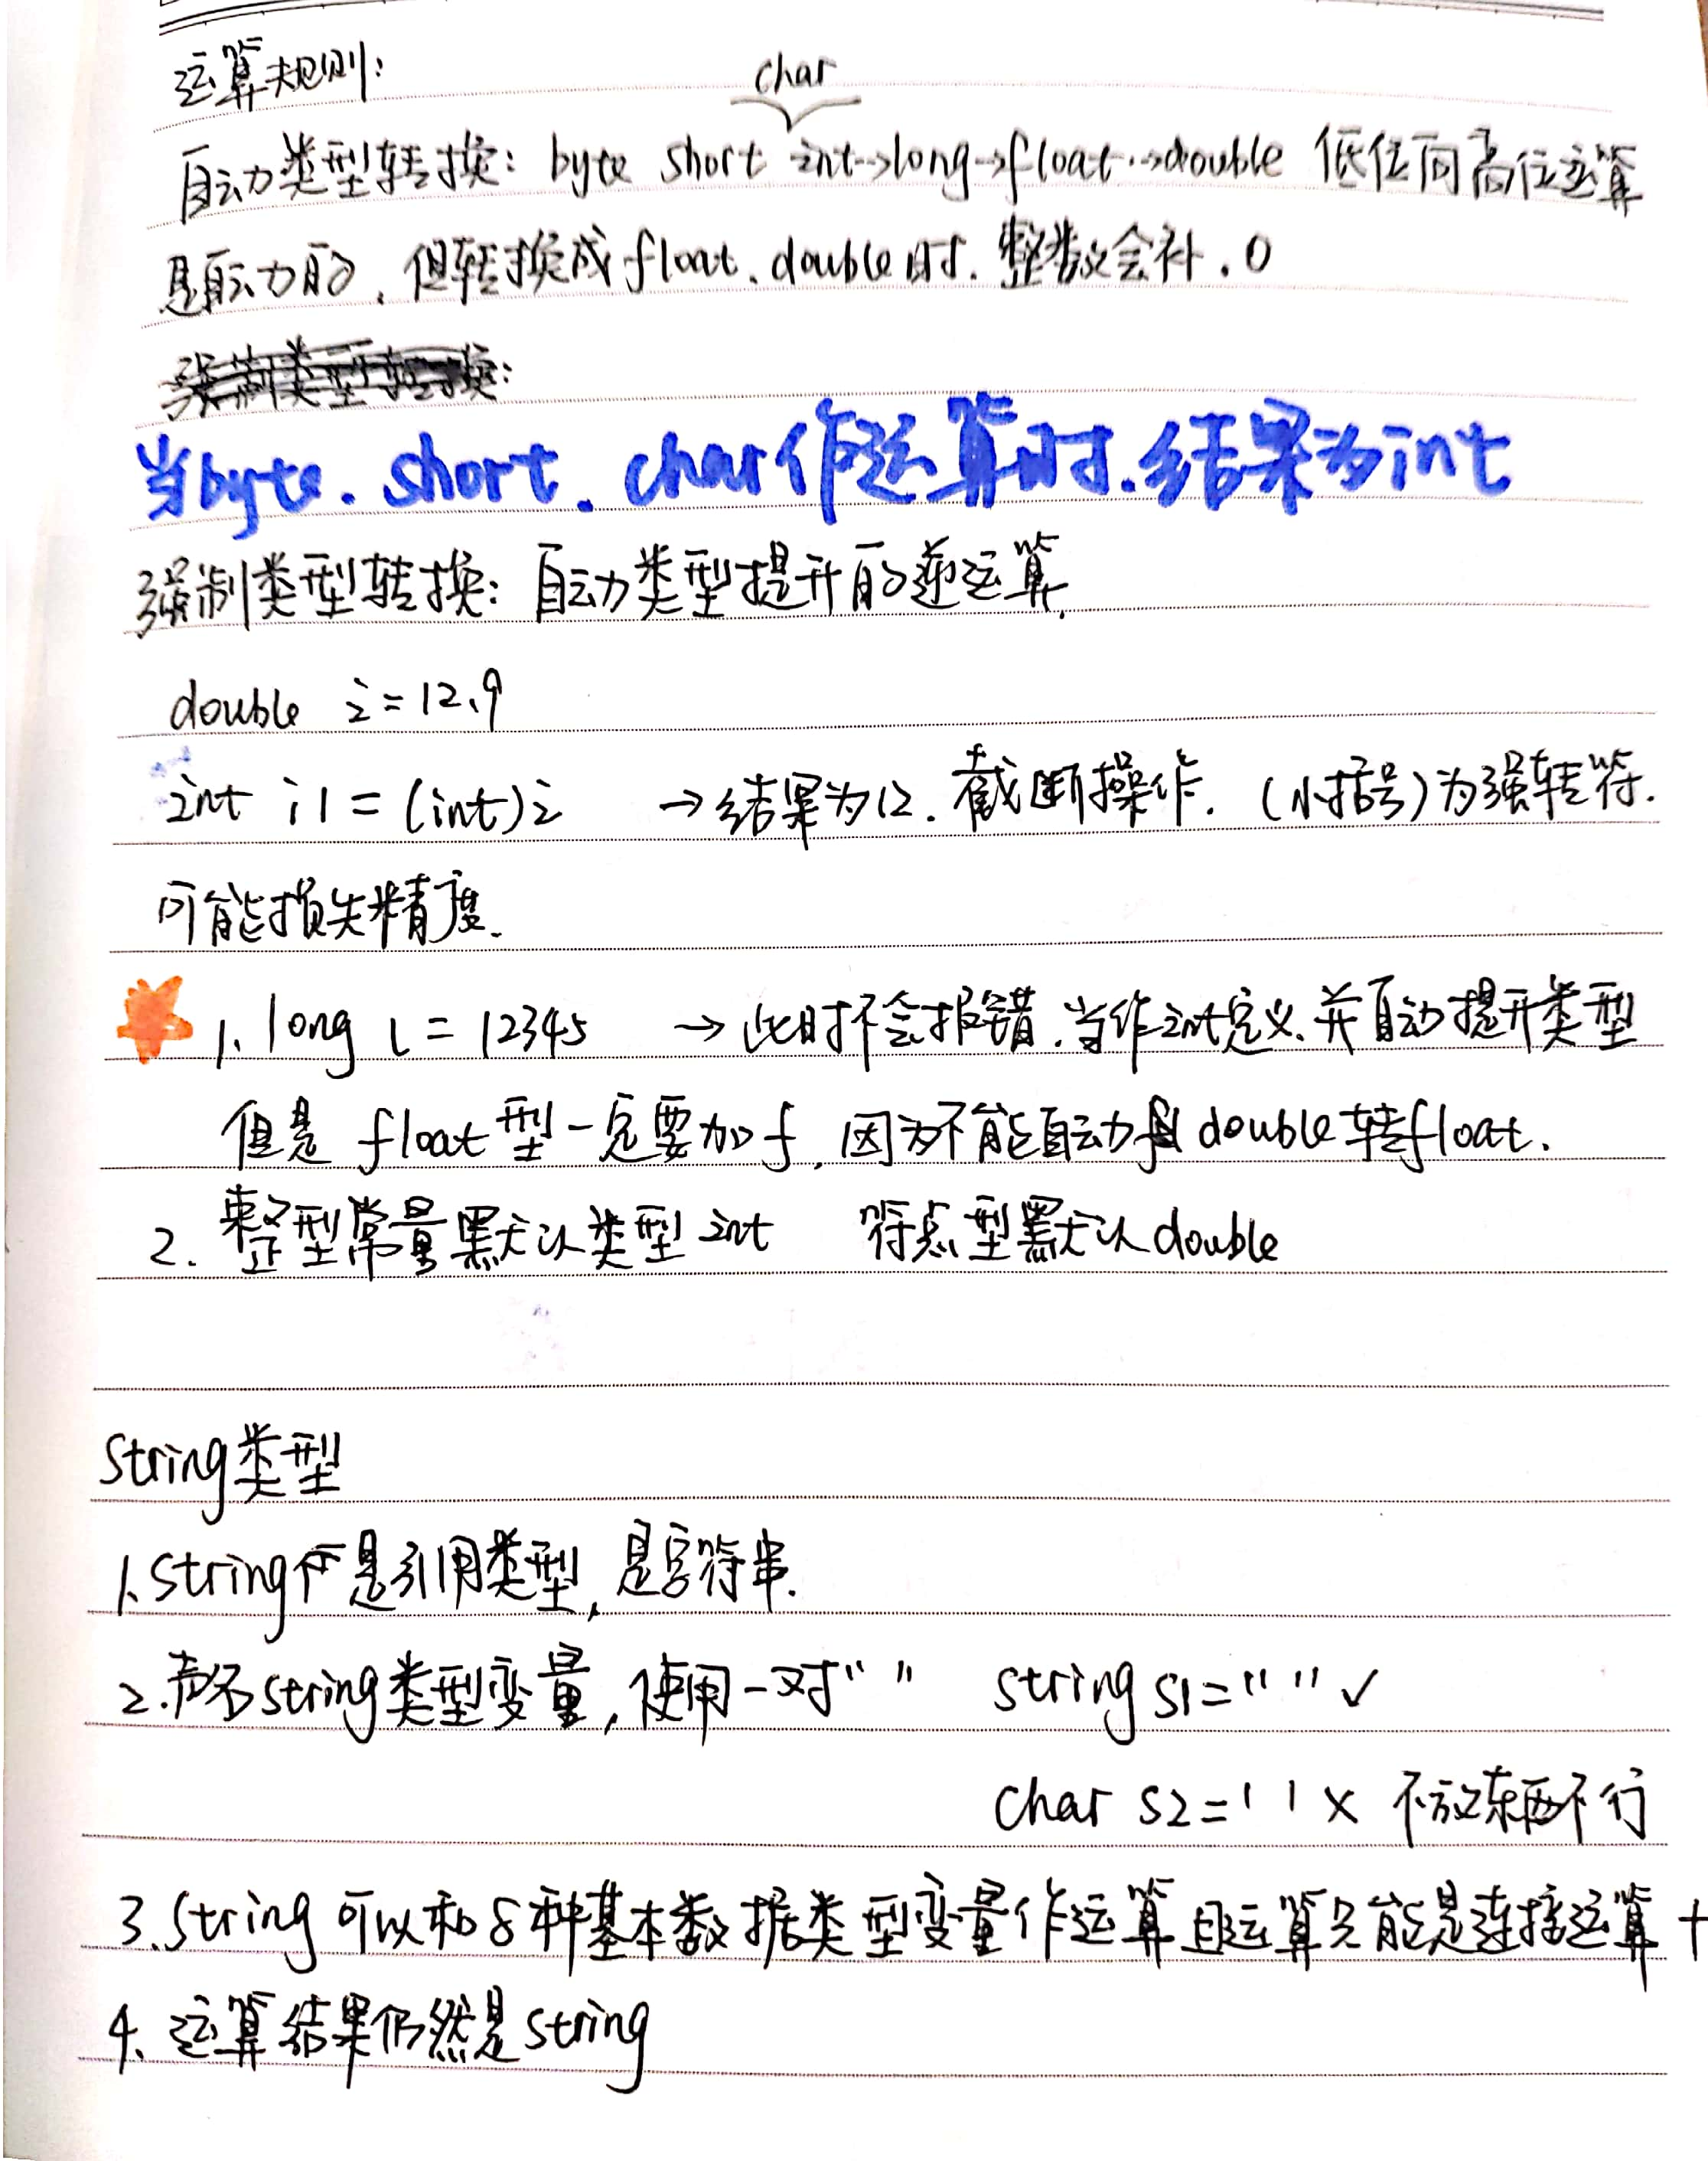 运算规则:
char
自动类型转换: byte short int→long→float→double 低位向高位运算
是自动的, 但转换成float、double时. 整数会补.0
强制类型转换:
当byte. short. char作运算时.结果为int
强制类型转换: 自动类型提升的逆运算.
double i = 12.9
int i1 = (int)i →结果为12. 截断操作. (小括号)为强转符.
可能损失精度.
1. long l = 12345 → 此时不会报错.当作int定义.并自动提升类型
但是 float型一定要加f, 因为不能自动由double转float.
2. 整型常量默认类型int 符点型默认double
String类型
1.String 是引用类型, 是字符串.
2.声名string类型变量,使用一对" " string s1=" " ✓
char s2=' ' × 不放东西不行
3.String 可以和8种基本数据类型变量作运算 且运算只能是连接运算 +
4. 运算结果仍然是string